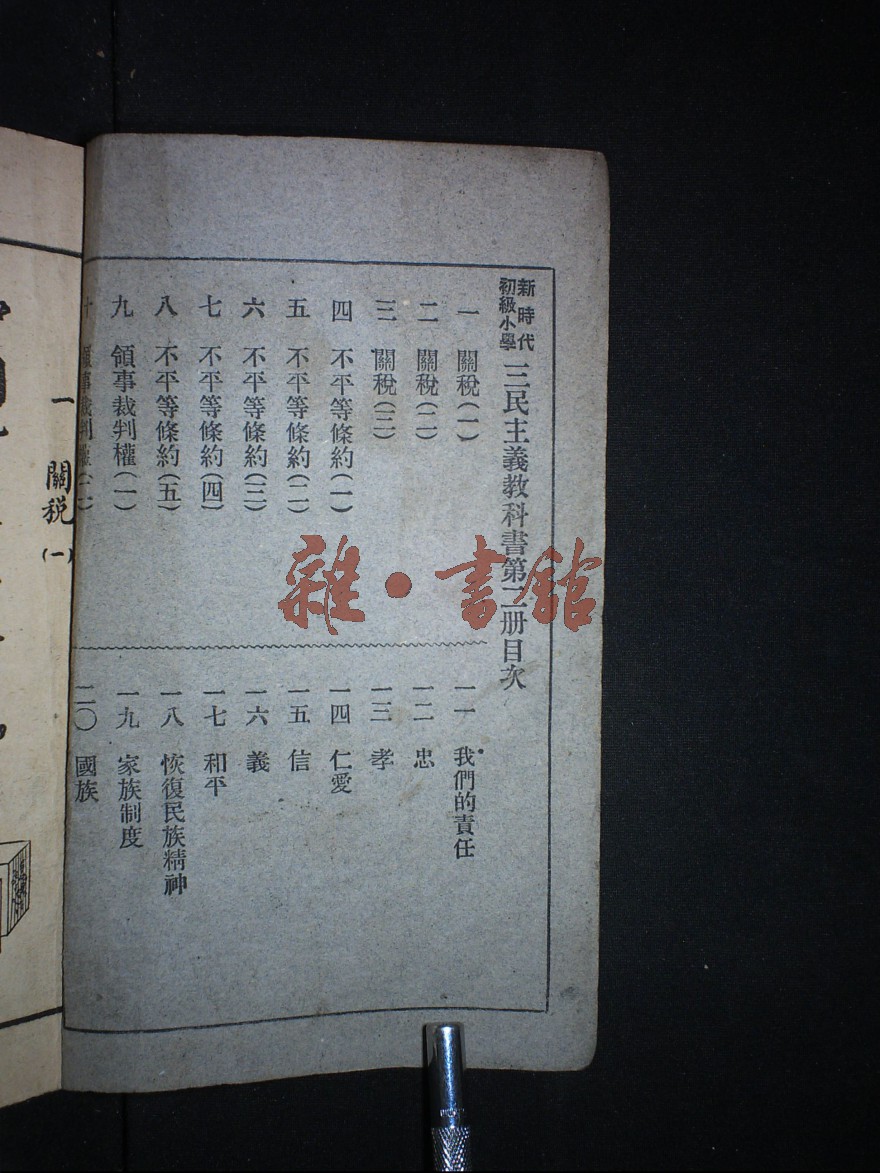 新時代
初級小學
三民主義教科書第二册目次
一 關稅(一)
二 關稅(二)
三 關稅(三)
四 不平等條約(一)
五 不平等條約(二)
六 不平等條約(三)
七 不平等條約(四)
八 不平等條約(五)
九 領事裁判權(一)
十 領事裁判權(二)
一一 我們的責任
一二 忠
一三 孝
一四 仁愛
一五 信
一六 義
一七 和平
一八 恢復民族精神
一九 家族制度
二〇 國族
一 關税(一)
雜·書館